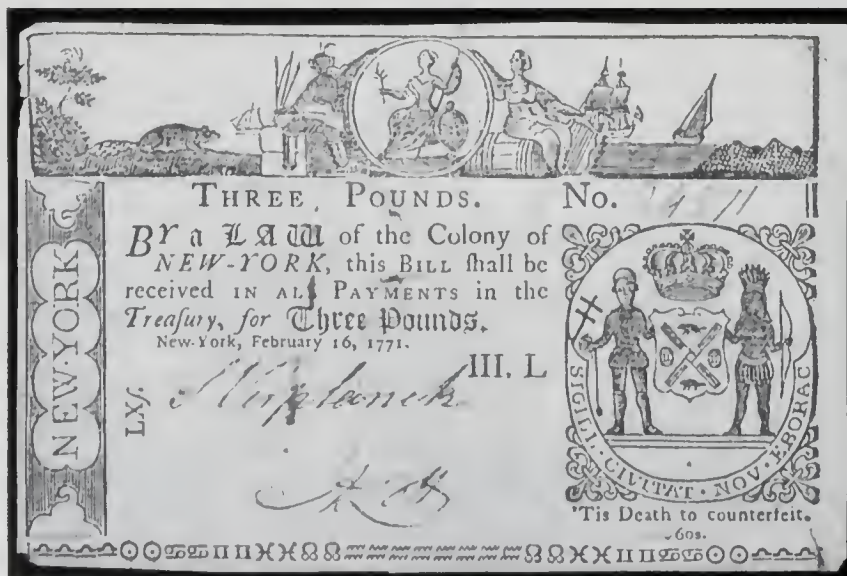 THREE POUNDS. No.
BY a LAW of the Colony of
NEW-YORK, this BILL ſhall be
received IN ALL PAYMENTS in the
Treaſury, for Three Pounds.
New-York, February 16, 1771.
III. L
LXſ.
NEW-YORK
SIGILL · CIVITAT · NOV · EBORAC
'Tis Death to counterfeit.
60s.